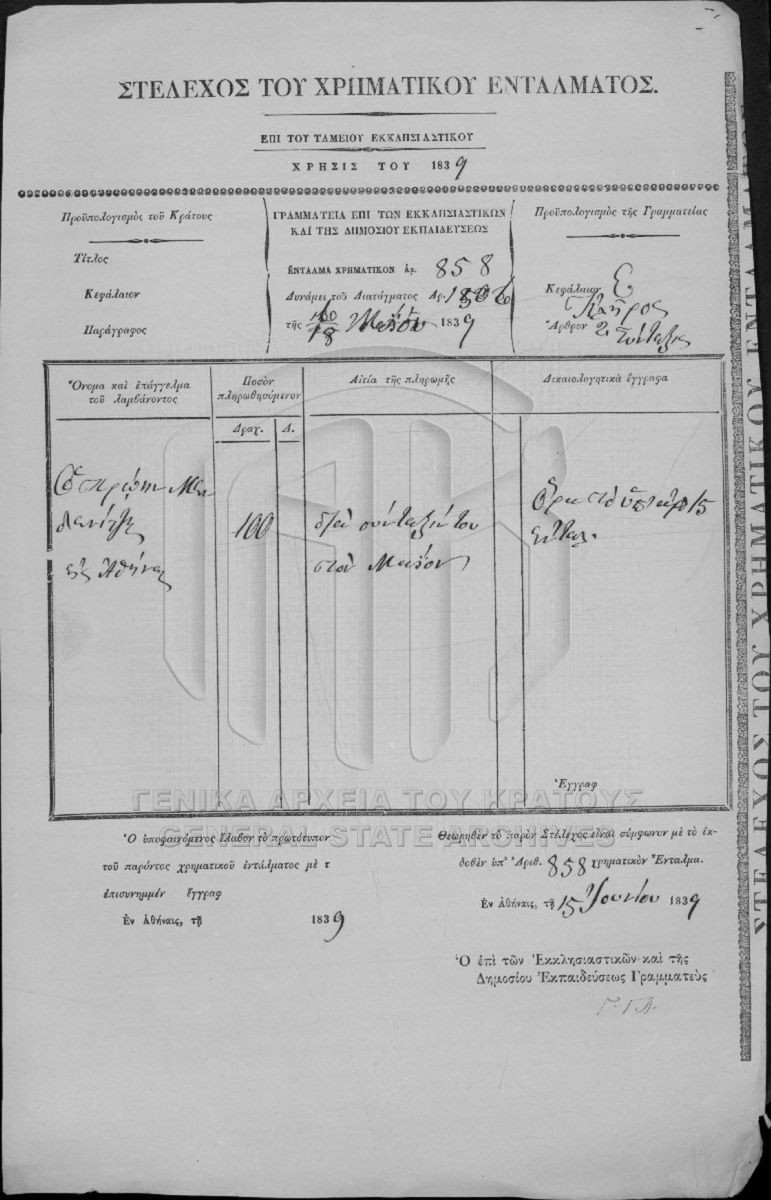 ΣΤΕΛΕΧΟΣ ΤΟΥ ΧΡΗΜΑΤΙΚΟΥ ΕΝΤΑΛΜΑΤΟΣ.
ΕΠΙ ΤΟΥ ΤΑΜΕΙΟΥ ΕΚΚΛΗΣΙΑΣΤΙΚΟΥ
ΧΡΗΣΙΣ ΤΟΥ 1839
Προϋπολογισμὸς τοῦ Κράτους
Τίτλος
Κεφάλαιον
Παράγραφος
ΓΡΑΜΜΑΤΕΙΑ ΕΠΙ ΤΩΝ ΕΚΚΛΗΣΙΑΣΤΙΚΩΝ
ΚΑΙ ΤΗΣ ΔΗΜΟΣΙΟΥ ΕΚΠΑΙΔΕΥΣΕΩΣ
ΕΝΤΑΛΜΑ ΧΡΗΜΑΤΙΚΟΝ ἀρ. 858
Δυνάμει τοῦ Διατάγματος Ἀρ.
τῆς Μαΐου 1839
Προϋπολογισμὸς τῆς Γραμματείας
Κεφάλαιον Ε
Κλῆρος
Ἄρθρον 2
Σύνταξις
Ὄνομα καὶ ἐπάγγελμα
τοῦ λαμβάνοντος
Ποσὸν
πληρωθησόμενον
Δραχ. Λ.
Αἰτία τῆς πληρωμῆς
Δικαιολογητικὰ ἔγγραφα
Ὁ πρώην
εἰς Ἀθήνας
100
διὰ σύνταξίν του
τὸν Μάϊον
15
Ἔγγραφ
ΓΕΝΙΚΑ ΑΡΧΕΙΑ ΤΟΥ ΚΡΑΤΟΥΣ
GENERAL STATE ARCHIVES
Ὁ ὑποφαινόμενος ἔλαβον τὸ πρωτότυπον
τοῦ παρόντος χρηματικοῦ ἐντάλματος μὲ τ
ἐπισυνημμέν ἔγγραφ
Ἐν Ἀθήναις, τῇ 1839
Θεωρηθὲν τὸ παρὸν Στέλεχος εἶναι σύμφωνον μὲ τὸ ἐκ-
δοθὲν ὑπ' Ἀριθ. 858 χρηματικὸν Ἔνταλμα.
Ἐν Ἀθήναις, τῇ 15 Ἰουνίου 1839
Ὁ ἐπὶ τῶν Ἐκκλησιαστικῶν καὶ τῆς
Δημοσίου Ἐκπαιδεύσεως Γραμματεὺς
ΣΤΕΛΕΧΟΣ ΤΟΥ ΧΡΗΜΑΤΙΚΟΥ ΕΝΤΑΛΜΑΤΟΣ